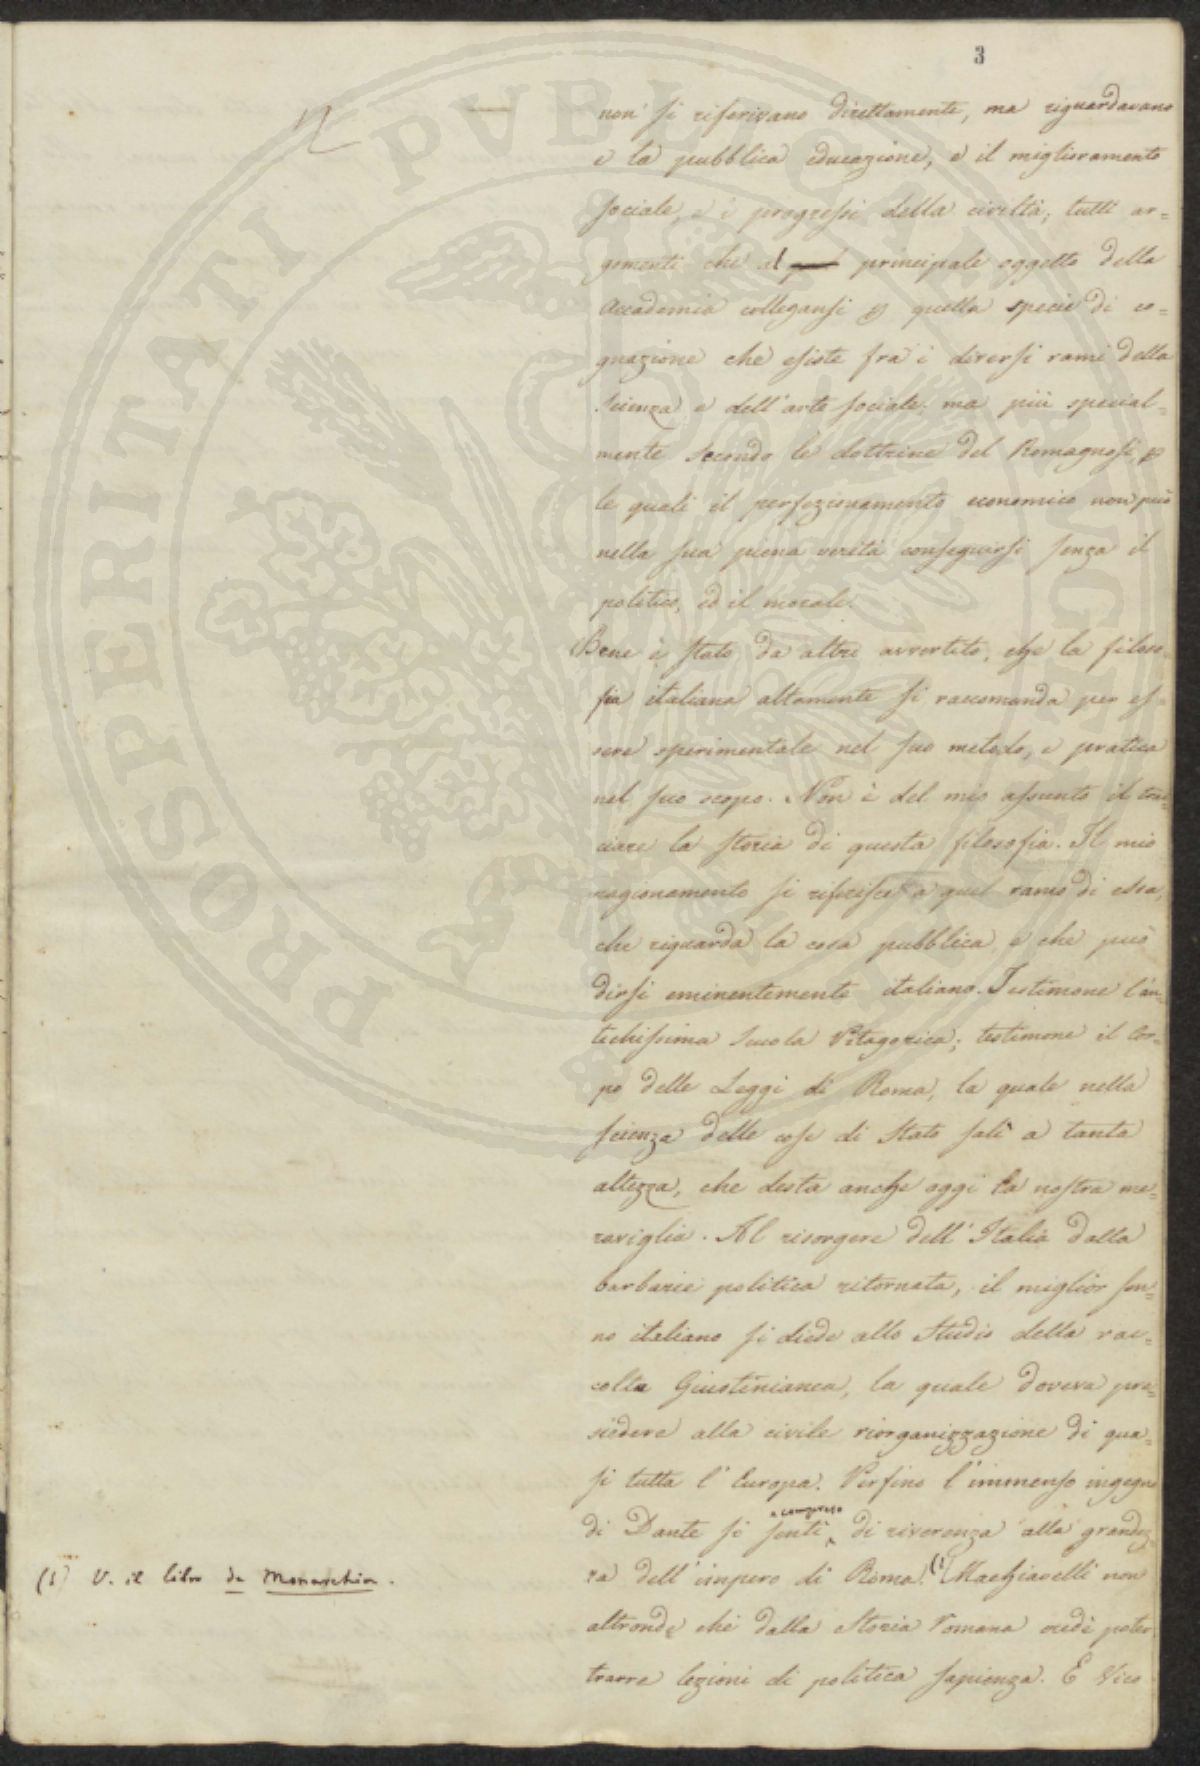 3
non si riferivano direttamente, ma riguardavano
e la pubblica educazione, e il miglioramento
sociale, e i progressi della civiltà; tutti ar=
gomenti che al principale oggetto della
Accademia collegansi p quella specie di co=
gnazione che esiste fra i diversi rami della
scienza e dell'arte sociale; ma più special=
mente secondo le dottrine del Romagnosi, p
le quali il perfezionamento economico non può
nella sua piena verità conseguirsi senza il
politico, ed il morale.
Bene è stato da altri avvertito, che la filoso=
fia italiana altamente si raccomanda per es=
sere sperimentale nel suo metodo, e pratica
nel suo scopo. Non è del mio assunto il trac=
ciare la storia di questa filosofia. Il mio
ragionamento si riferisce a quel ramo di essa,
che riguarda la cosa pubblica, e che può
dirsi eminentemente italiano. Testimone l'an=
tichissima scuola Pitagorica; testimone il Cor=
po delle Leggi di Roma, la quale nella
scienza delle cose di Stato salì a tanta
altezza, che desta anche oggi la nostra me=
raviglia. Al risorgere dell'Italia dalla
barbarie politica ritornata, il miglior sen=
no italiano si diede allo studio della rac=
colta Giustinianea, la quale doveva pre=
siedere alla civile riorganizzazione di qua=
si tutta l'Europa. Perfino l'immenso ingegno
compreso
di Dante si sentì di riverenza alla grandez=
za dell'impero di Roma.(1) Machiavelli non
altronde che dalla Storia romana credè poter
trarre lezioni di politica sapienza. E Vico
(1) V. il libro de Monarchia.
PROSPERITATI PVBLICAE